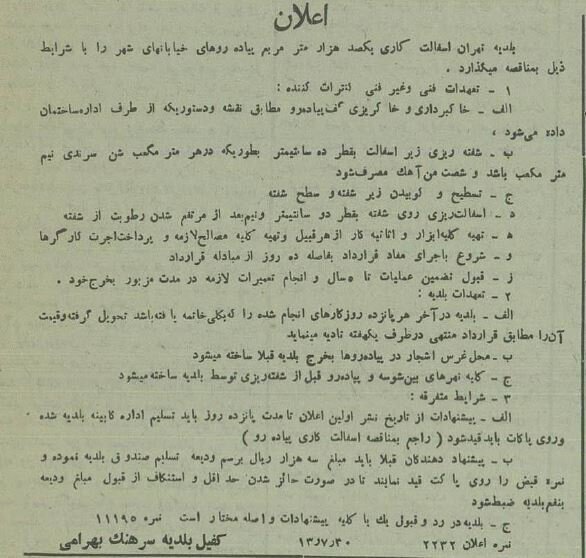 اعلان
بلدیه تهران اسفالت کاری یکصد هزار متر مربع پیاده روهای خیابانهای شهر را با شرایط
ذیل بمناقصه میگذارد .
۱ - تعهدات فنی وغیر فنی کنترات کننده :
الف - خاکبرداری و خاکریزی کف‌پیاده‌رو مطابق نقشه ودستوریکه از طرف اداره‌ساختمان
داده می‌شود ،
ب - شفته ریزی زیر اسفالت بقطر ده سانتیمتر بطوریکه درهر متر مکعب شن سرندی نیم
متر مکعب باشد و شصت من‌آهك مصرف‌شود
ج - تسطیح و کوبیدن زیر شفته‌و سطح شفته
د - اسفالت‌ریزی روی شفته بقطر دو سانتیمتر ونیم‌بعد از مرتفع شدن رطوبت از شفته
ه - تهیه کلیه‌ابزار و اثاثیه کار از‌هرقبیل وتهیه کلیه مصالح‌لازمه و پرداخت‌اجرت کارگرها
و - شروع باجرای مفاد قرارداد بفاصله ده روز از مبادله قرارداد
ز - قبول تضمین عملیات تا ۵سال و انجام تعمیرات لازمه در مدت مزبور بخرج‌خود .
۲ - تعهدات بلدیه :
الف - بلدیه درآخر هرپانزده روزکارهای انجام شده را که‌بکلی‌خاتمه یافته‌باشد تحویل گرفته‌وقیمت
آن‌را مطابق قرارداد منتهی درظرف یکهفته تادیه مینماید
ب - محل‌غرس اشجار در پیاده‌روها بخرج بلدیه قبلا ساخته میشود
ج - کلیه نهرهای بین‌شوسه و پیاده‌رو قبل از شفته‌ریزی توسط بلدیه ساخته‌میشود
۳ - شرایط متفرقه :
الف - پیشنهادات از تاریخ نشر اولین اعلان تا‌مدت پانزده روز باید تسلیم اداره کابینه بلدیه شده
وروی پاکات باید‌قید‌شود ( راجع بمناقصه اسفالت کاری پیاده رو )
ب - پیشنهاد دهندگان قبلا باید مبلغ سه هزار ریال برسم ودیعه تسلیم صندوق بلدیه نموده و
نمره قبض را روی پاکت قید نمایند تا‌در صورت حائز شدن حد اقل و استنکاف از قبول مبلغ ودیعه
بنفع‌بلدیه ضبط‌شود
ج - بلدیه‌در‌رد و قبول یك یا کلیه پیشنهادات واصله مختار است نمره ۱۱۱۹۵
نمره اعلان ۲۲۳۲ ۱۳٫۷٫۳۰ کفیل بلدیه سرهنك بهرامی